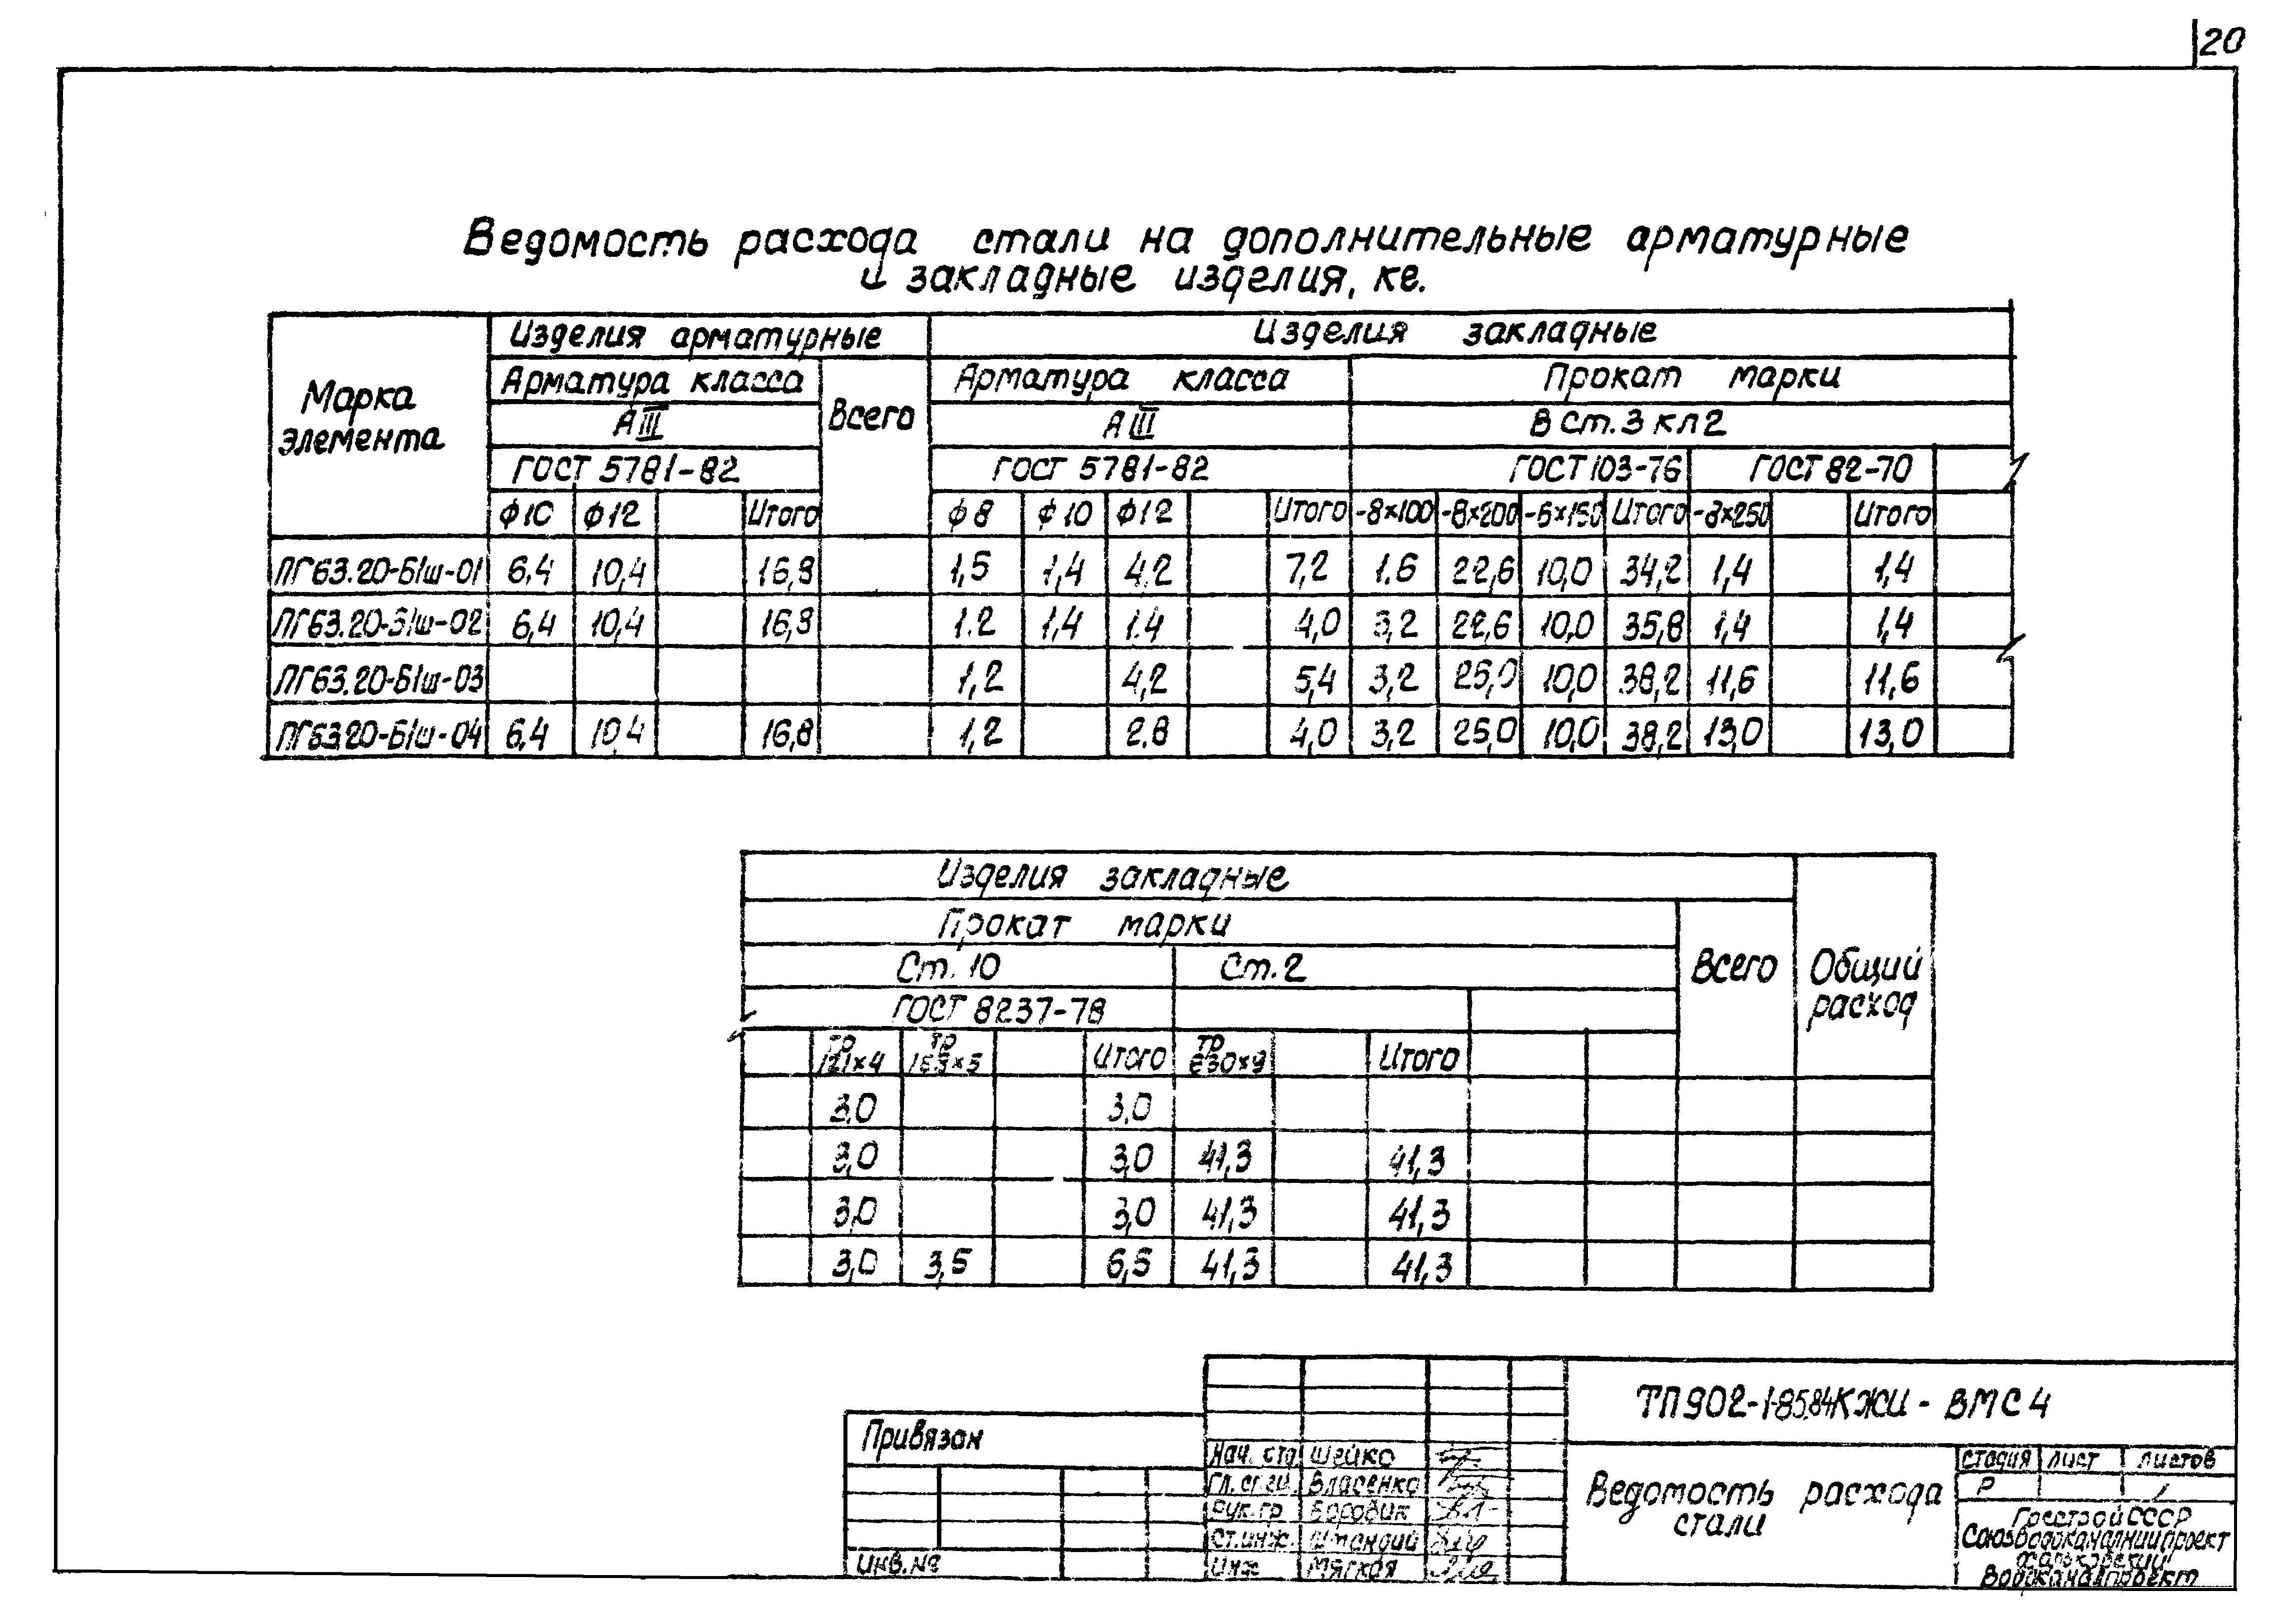 20
Ведомость расхода стали на дополнительные арматурные
и закладные изделия, кг.
Марка элемента
Изделия арматурные
Изделия закладные
Арматура класса
Всего
Арматура класса
Прокат марки
АIII
АIII
В Ст.3 кл2
ГОСТ 5781-82
ГОСТ 5781-82
ГОСТ 103-76
ГОСТ 82-70
Ф10 Ф12 Итого Ф8 Ф10 Ф12 Итого -8×100 -8×200 -6×150 Итого -8×250 Итого
ПГ63.20-Б1ш-01 6,4 10,4 16,8 1,5 1,4 4.2 7,2 1.6 22,6 10,0 34,2 1,4 1,4
ПГ63.20-Б1ш-02 6,4 10,4 16,8 1.2 1,4 1.4 4,0 3,2 22,6 10,0 35,8 1,4 1,4
ПГ63.20-Б1ш-03 1,2 4,2 5,4 3,2 25,0 10,0 38,2 11,6 11,6
ПГ63.20-Б1ш-04 6,4 10,4 16,8 1,2 2.8 4,0 3,2 25,0 10,0 38,2 13,0 13,0
Изделия закладные
Прокат марки
Всего
Общий расход
Ст. 10
Ст. 2
ГОСТ 8237-78
тр 121×4 тр 159×5 Итого тр 630×9 Итого
3,0 3,0
3,0 3,0 41,3 41,3
3,0 3,0 41,3 41,3
3,0 3,5 6,5 41,3 41,3
ТП902-1-85.84КЖИ - ВМС4
Привязан
Нач. отд Шейко
Гл. Власенко
Рук.гр Бородик
Ст.инж. Штандий
Инж Мягкая
Инв.№
Ведомость расхода
стали
стадия лист листов
Р 1
Госстрой СССР
Союзводоканалниипроект
Харьковский
Водоканалпроект